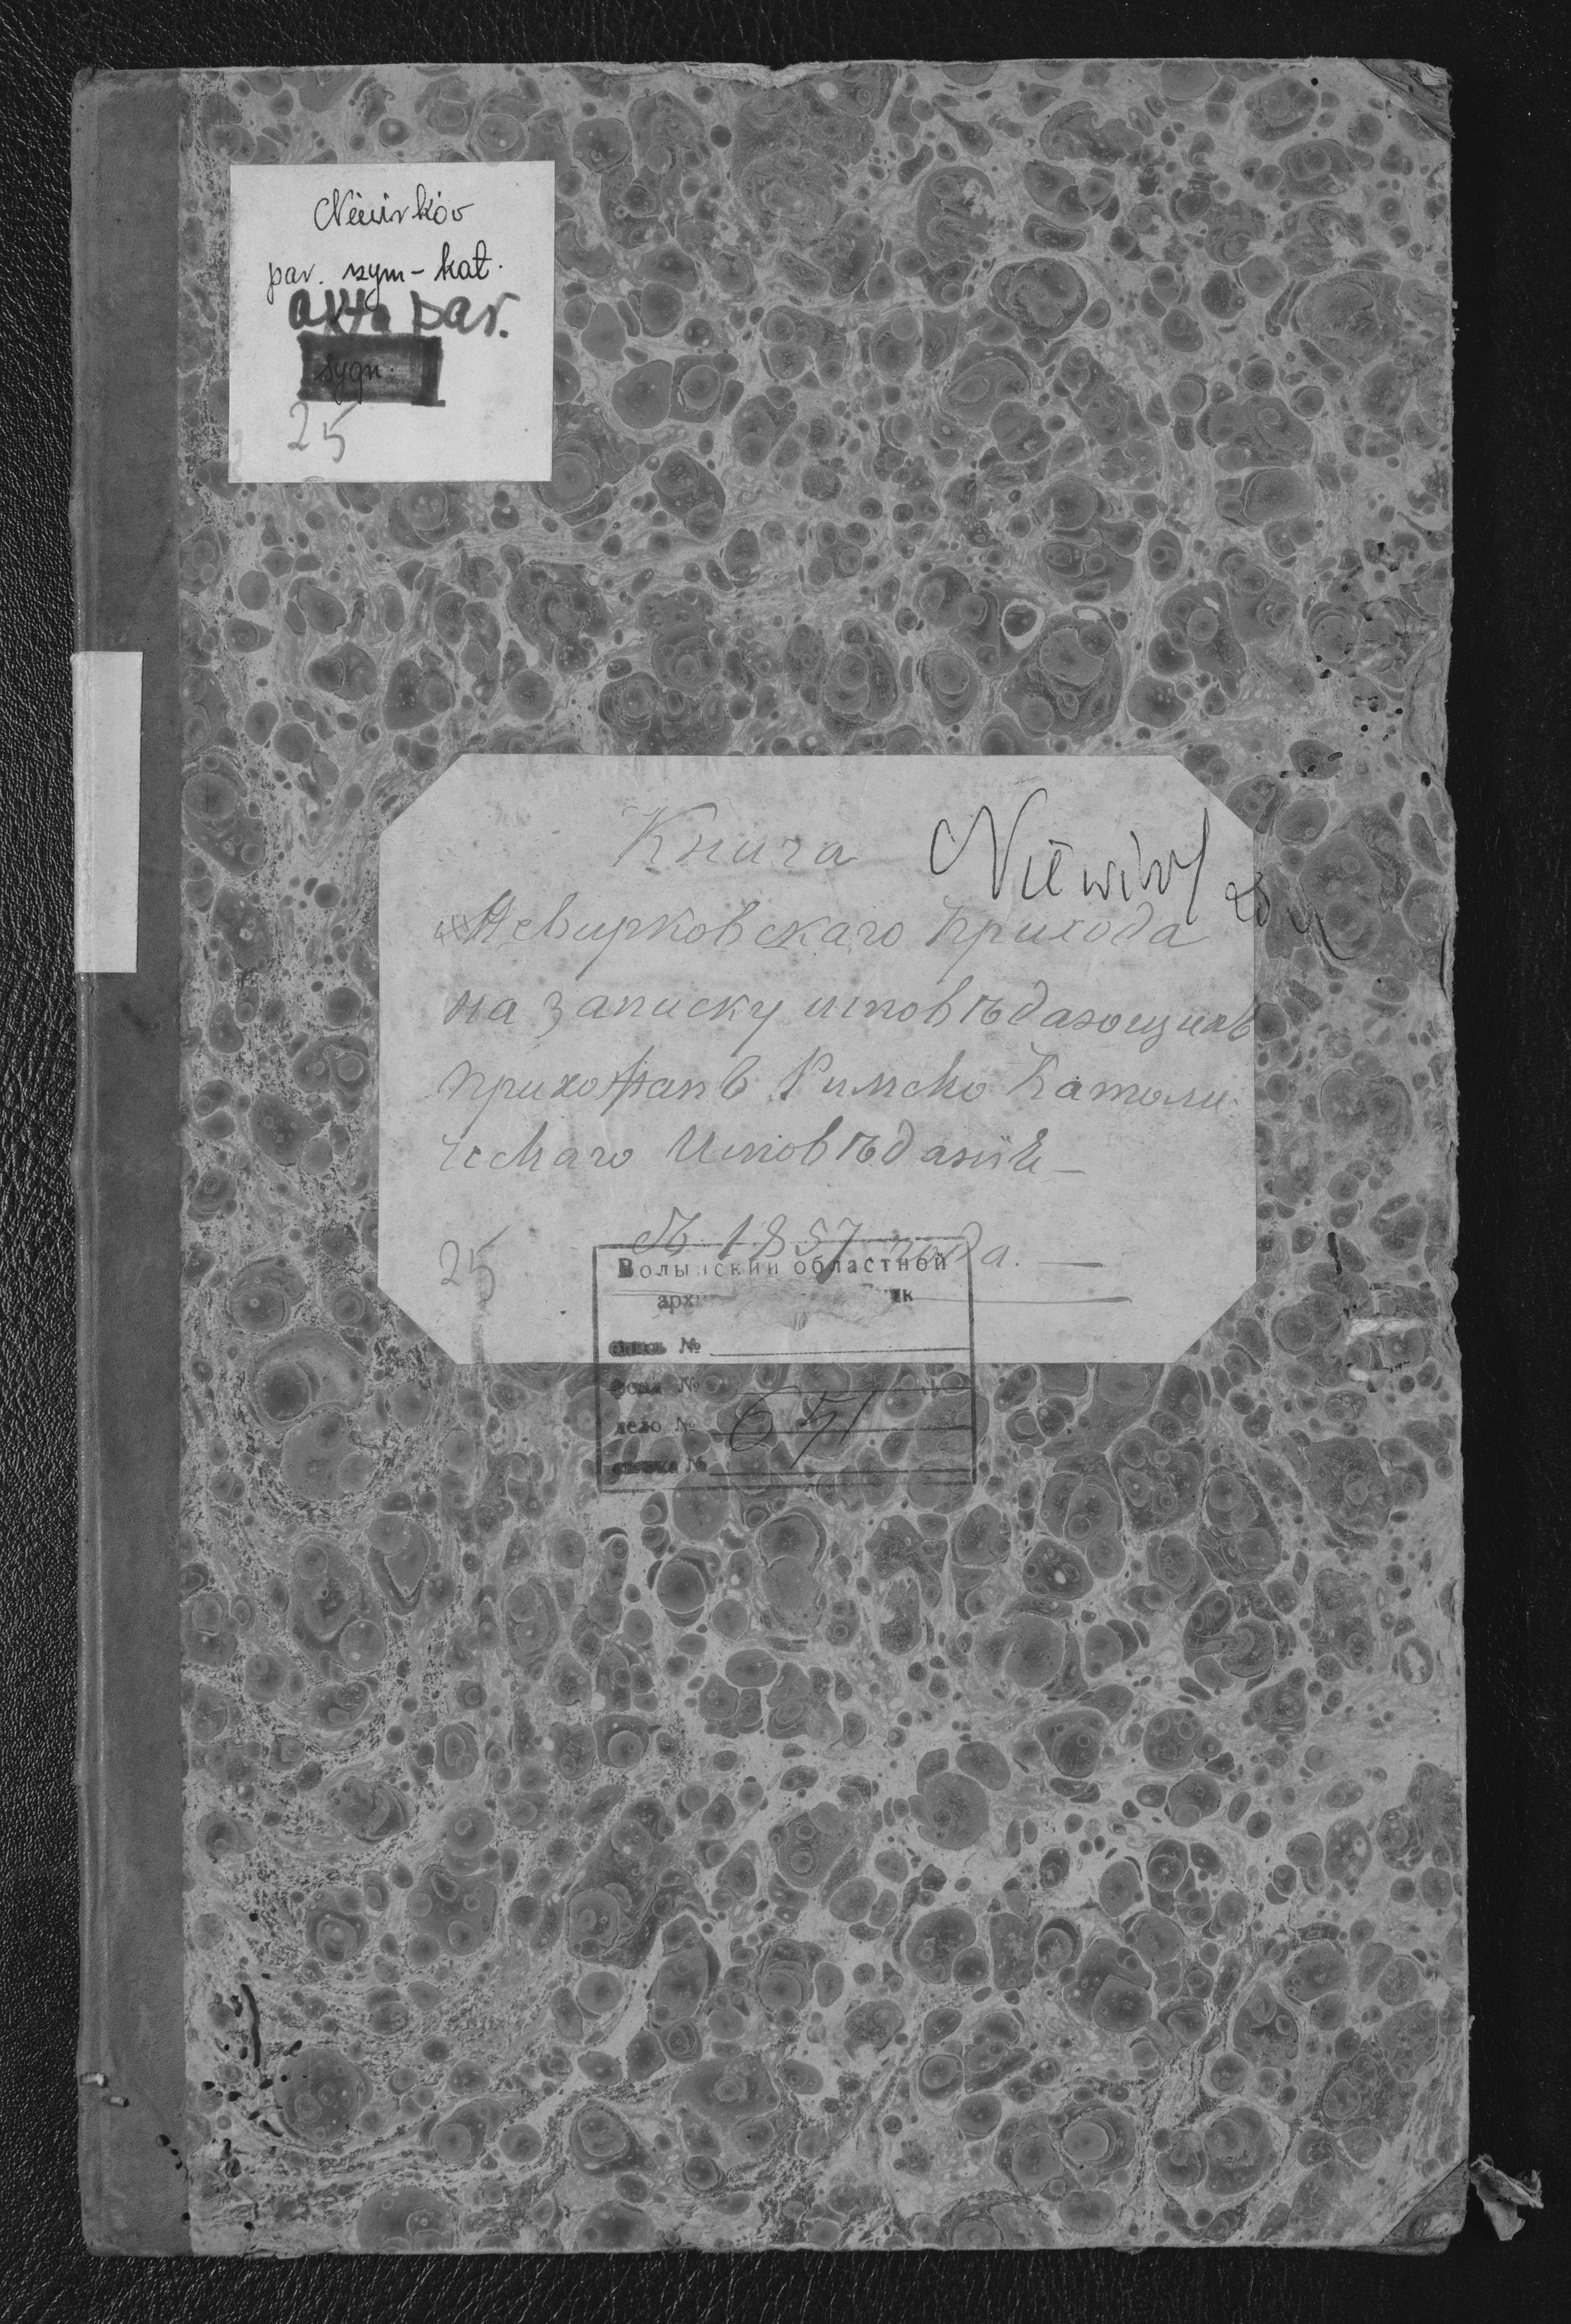 Niewirków
par. rzym-kat.
akta par.
sygn.
25
Книга
Невирковскаго Прихода
на записку исповѣдающихъ
Прихожанъ Римско Католи-
ческаго Исповѣданія
Съ 1857 года.
25
Волынский областной
опись №
фонд №
дело № 651
связка №